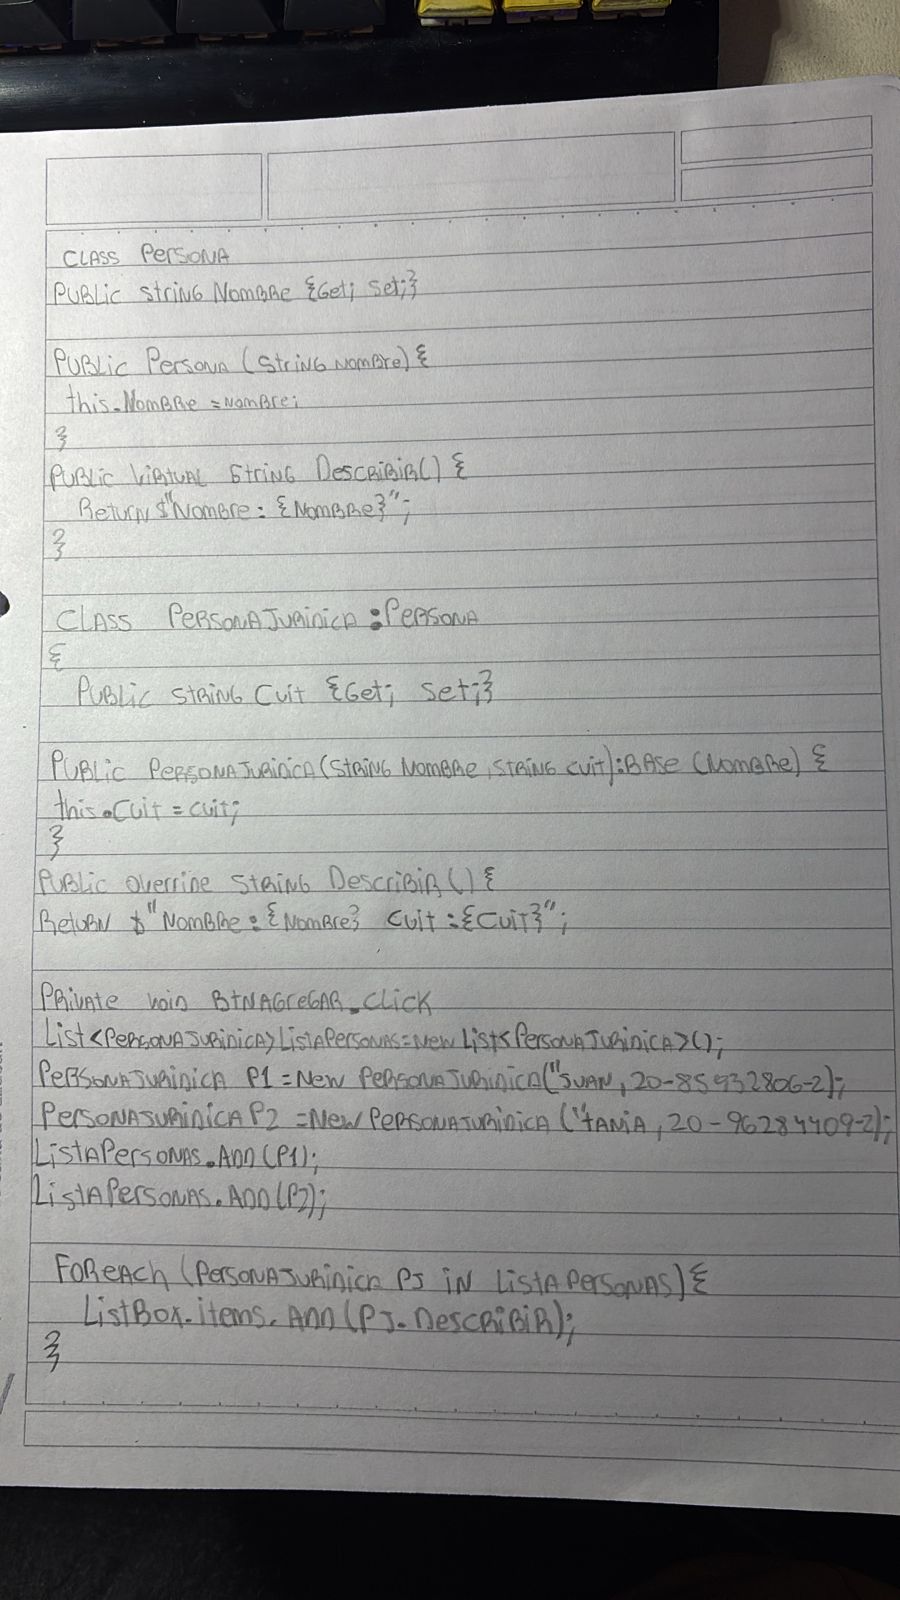 CLASS PERSONA
PUBLIC STRING NOMBRE {Get; Set;}
PUBLIC PERSONA (STRING NOMBRE) {
this.NOMBRE = NOMBRE;
}
PUBLIC VIRTUAL STRING DESCRIBIR() {
RETURN $"NOMBRE: {NOMBRE}";
}
CLASS PERSONAJURIDICA : PERSONA
{
PUBLIC STRING CUIT {Get; Set;}
PUBLIC PERSONAJURIDICA(STRING NOMBRE, STRING CUIT):BASE (NOMBRE) {
this.CUIT = CUIT;
}
PUBLIC OVERRIDE STRING DESCRIBIR() {
RETURN $"NOMBRE: {NOMBRE} CUIT: {CUIT}";
PRIVATE VOID BTNAGREGAR_CLICK
LIST<PERSONAJURIDICA>LISTAPERSONAS=NEW LIST<PERSONAJURIDICA>();
PERSONAJURIDICA P1 = NEW PERSONAJURIDICA("JUAN, 20-85932806-2);
PERSONAJURIDICA P2 = NEW PERSONAJURIDICA ("TANIA, 20-96284409-2);
LISTAPERSONAS.ADD(P1);
LISTAPERSONAS.ADD(P2);
FOREACH (PERSONAJURIDICA PJ IN LISTAPERSONAS) {
LISTBOX.ITEMS.ADD(PJ.DESCRIBIR);
}